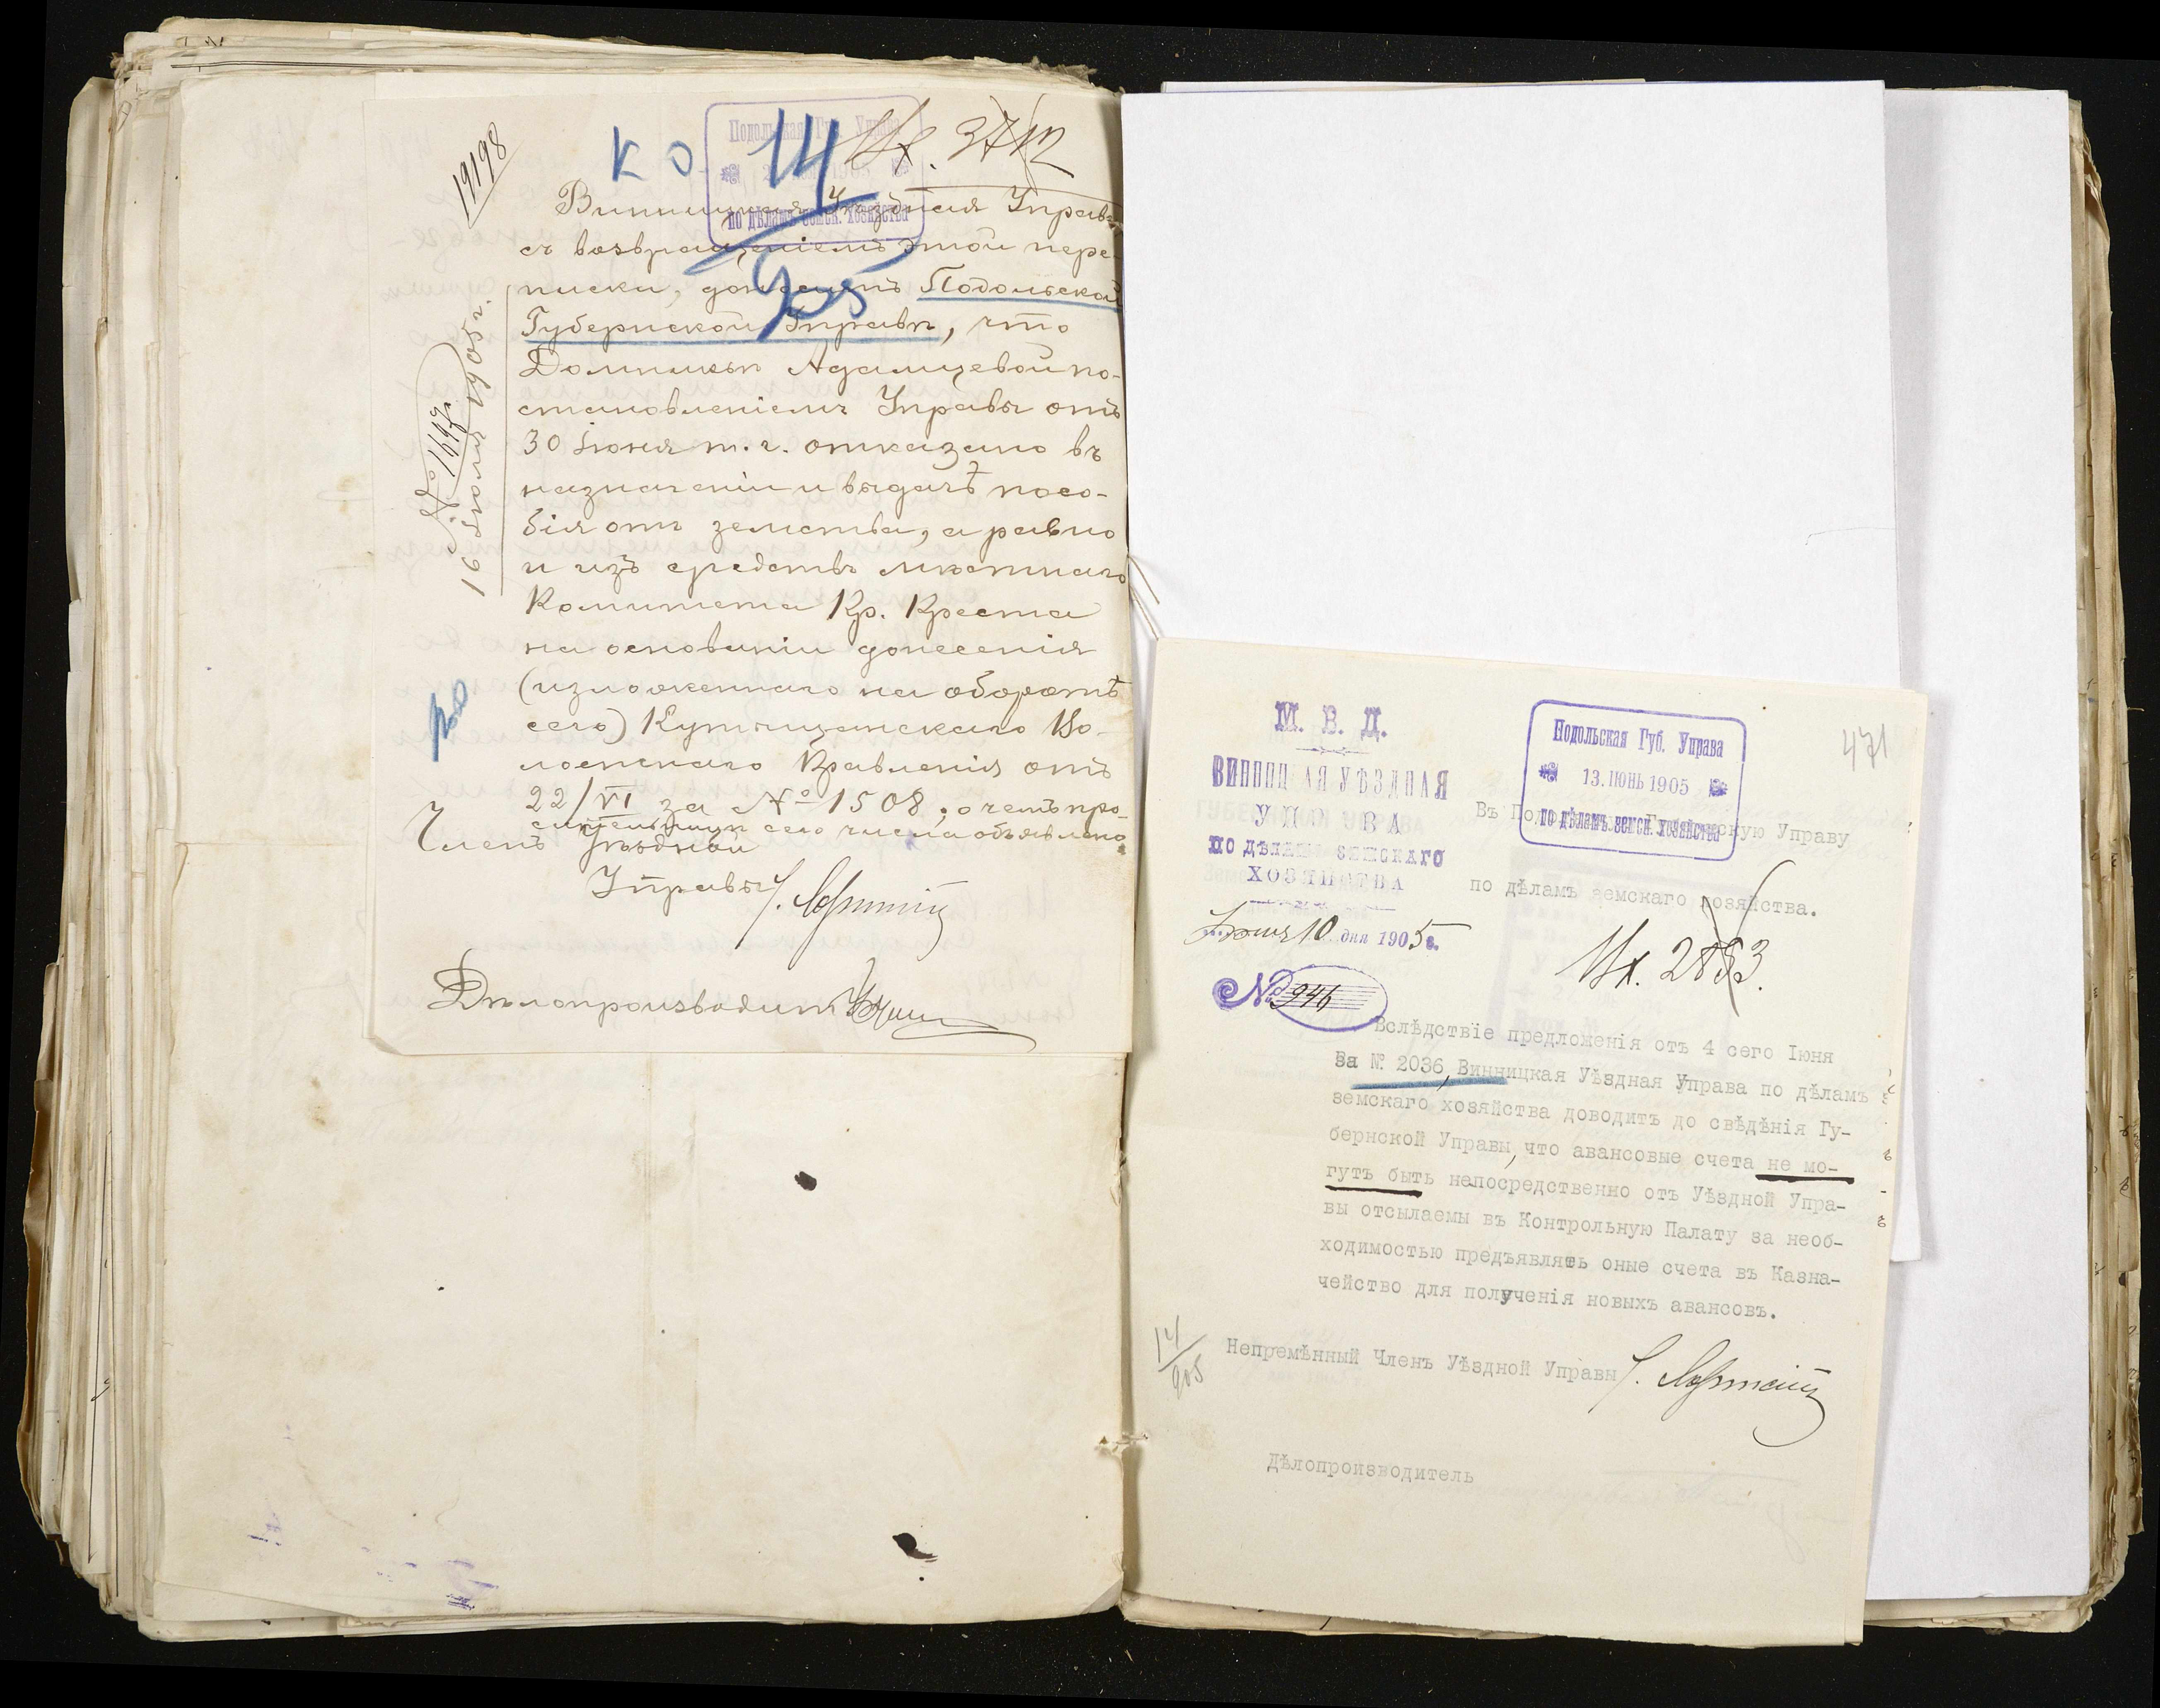 19198
К О 14
Вх. 3712
Подольская Губ. Управа
1905
по дѣламъ земск. хозяйства
905
№ 1697
16 Іюля 1905 г.
Винницкая Уѣздная Управа,
съ возвращеніемъ этой пере-
писки, доноситъ Подольской
Губернской Управѣ, что
Домникѣ Адамцевой по-
становленіемъ Управы отъ
30 Іюня т. г. отказано въ
назначеніи и выдачѣ посо-
бія отъ земства, а равно
и изъ средствъ мѣстнаго
Комитета Кр. Креста
на основаніи донесенія
(изложеннаго на оборотѣ
сего) Волостнаго
Правленія отъ
22/VI за № 1508, о чемъ про-
сительницѣ сего числа объявлено.
Членъ Уѣздной
Управы
Дѣлопроизводитель
М. В. Д.
ВИННИЦКАЯ УѢЗДНАЯ
УПРАВА
ПО ДѢЛАМЪ ЗЕМСКАГО
ХОЗЯЙСТВА
Іюня 10 дня 1905 г.
№ 946
Подольская Губ. Управа
13. ІЮНЬ 1905
по дѣламъ земск. хозяйства
471
Въ Подольскую Губернскую Управу
по дѣламъ земскаго хозяйства.
Вх. 2853.
Вслѣдствіе предложенія отъ 4 сего Іюня
за № 2036, Винницкая Уѣздная Управа по дѣламъ
земскаго хозяйства доводитъ до свѣдѣнія Гу-
бернской Управы, что авансовые счета не мо-
гутъ быть непосредственно отъ Уѣздной Упра-
вы отсылаемы въ Контрольную Палату за необ-
ходимостью предъявлять оные счета въ Казна-
чейство для полученія новыхъ авансовъ.
14/905
Непремѣнный Членъ Уѣздной Управы
Дѣлопроизводитель